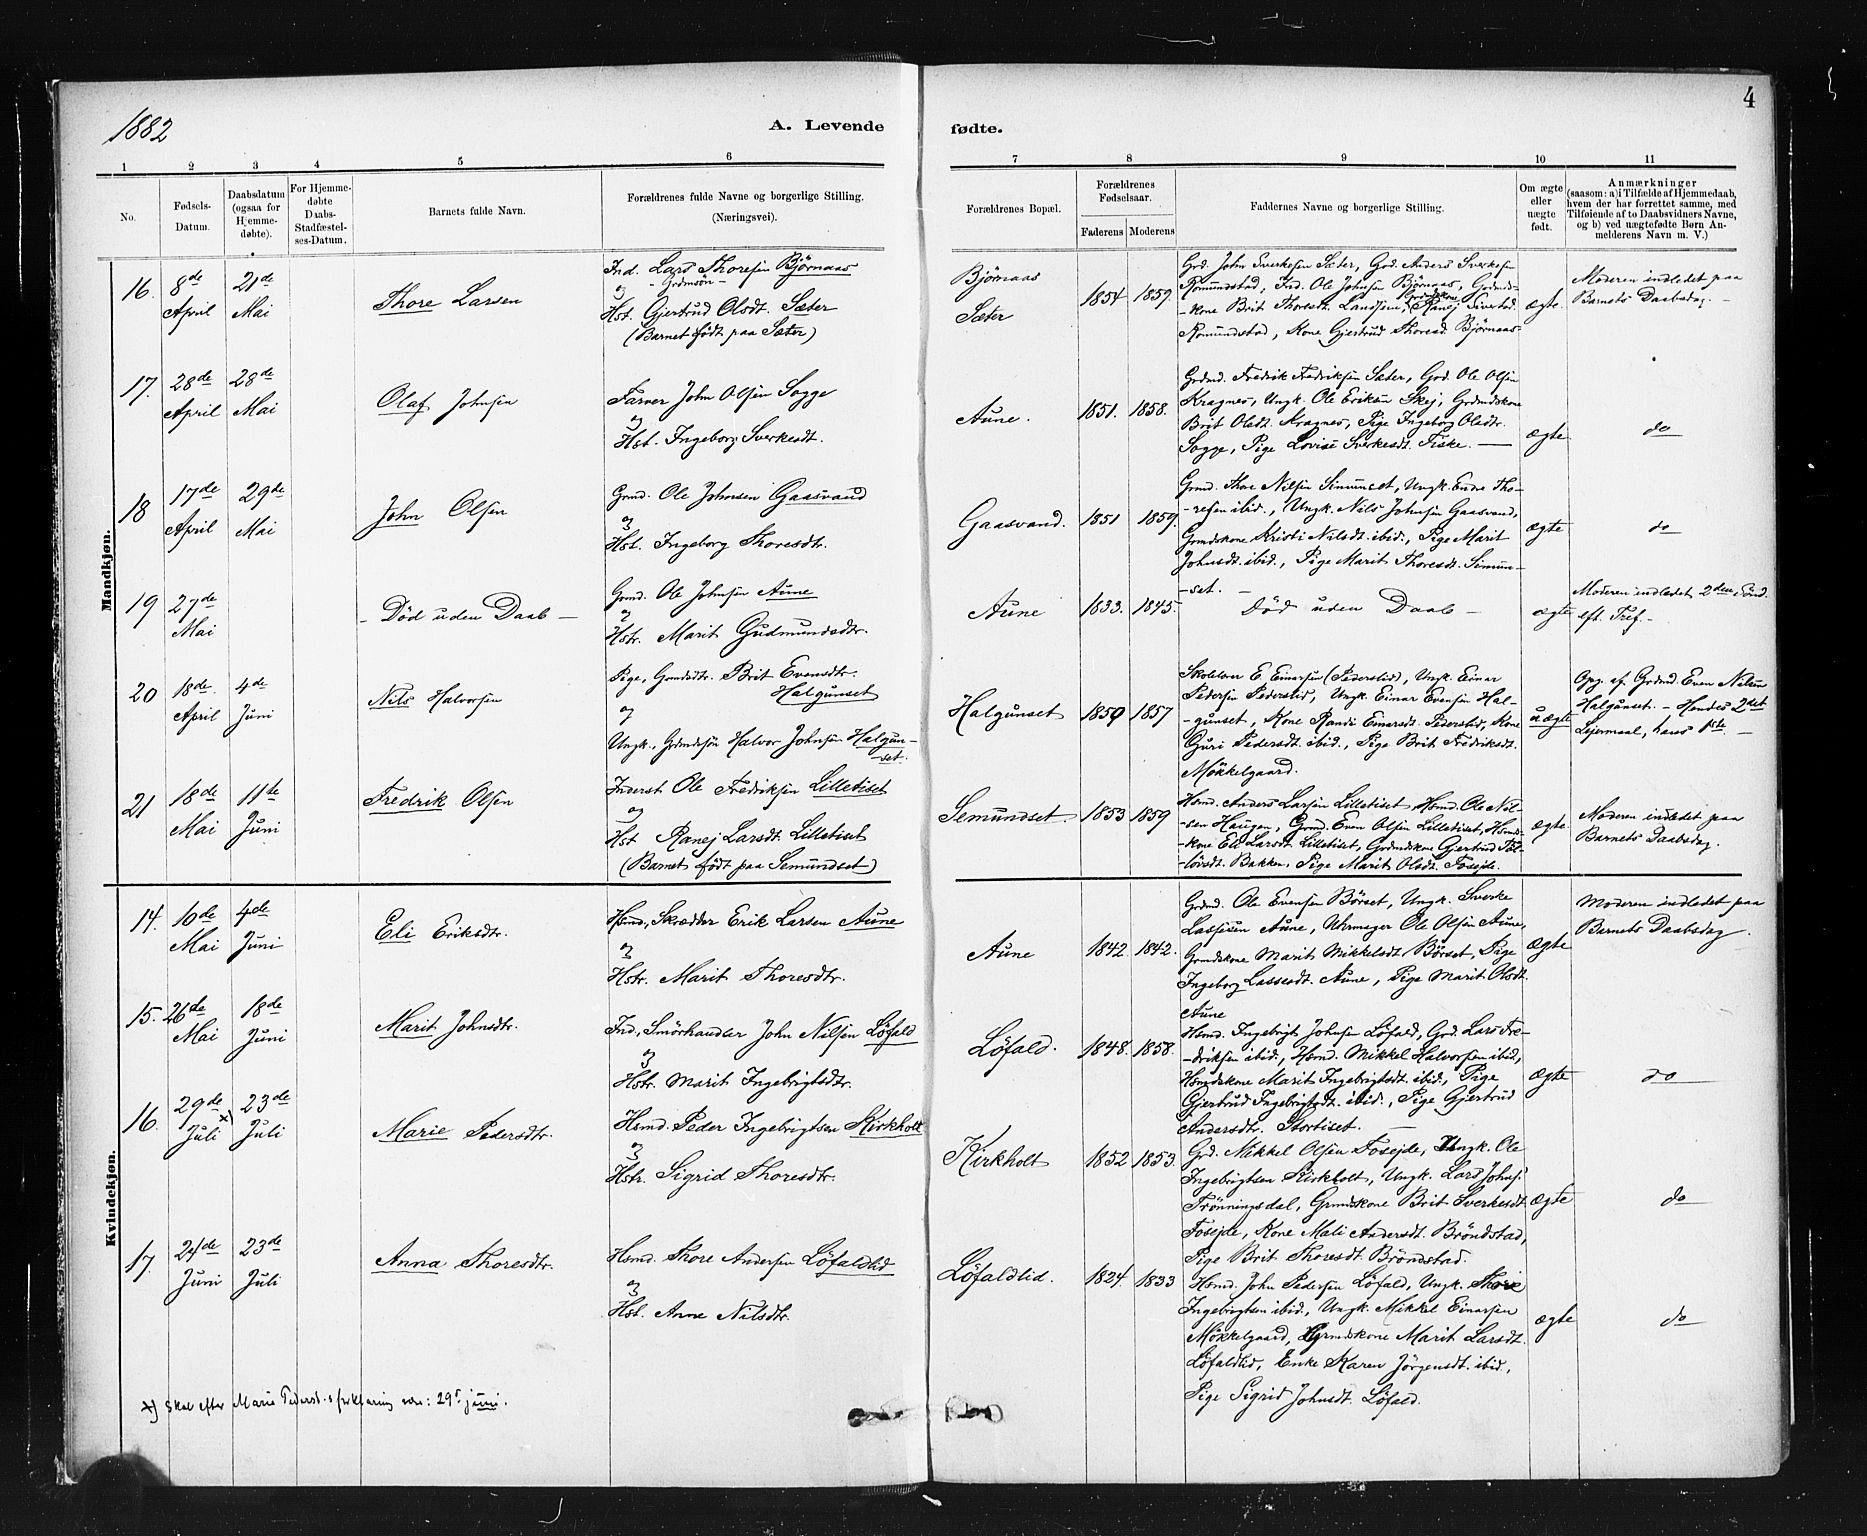 1882
A. Levende
fødte.
4
1 2 3 4 5 6 7 8 9 10 11
No.
Fødsels-
Datum.
Daabsdatum
(ogsaa for
Hjemme-
døbte).
For Hjemme-
døbte
Daabs-
Stadfæstel-
ses-Datum.
Barnets fulde Navn.
Forældrenes fulde Navne og borgerlige Stilling.
(Næringsvei).
Forældrenes Bopæl.
Forældrenes
Fødselsaar.
Faderens Moderens
Faddernes Navne og borgerlige Stilling.
Om ægte
eller
uægte
født.
Anmærkninger
(saasom: a) i Tilfælde af Hjemmedaab,
hvem der har forrettet samme, med
Tilføiende af to Daabsvidners Navne,
og b) ved uægtefødte Børn An-
melderens Navn m. V.)
Mandkjøn.
16. 8de April
21de Mai
Thore Larsen
Ind. Lars Thoresen Bjørnaas
- Grdmsön -
og
Hst. Gjertrud Olsdt. Sæter
(Barnet födt paa Sæter)
Bjørnaas
Sæter
1854 1859.
Grd. John Sverkesen Sæter, Grd. Anders Sverkesen
Romundstad, Ind. Ole Johnsen Bjørnaas, Grdmds-
-kone Brit Thoresdt. Landsem, Grdmdskone Ranej Sivertsd.
Romundstad, Kone Gjertrud Thoresd. Bjørnaas
ægte.
Moderen indledet paa
Barnets Daabsdag. -
17. 28de April
28de Mai
Olaf Johnsen
Farver John Olsen Sogge
og
Hst. Ingeborg Sverkesdt.
Aune.
1851. 1858.
Grdmd. Fredrik Fredriksen Sæter, Grd. Ole Olsen
Kragnes, Ungk. Ole Eriksen Skej, Grdmdskone
Brit Olsdt. Kragnes, Pige Ingeborg Olsdtr.
Sogge, Pige Lovise Sverkesdt. Fiske. -
ægte
do
18 17de April
29de Mai
John Olsen
Grmd. Ole Johnsen Gaasvand
og
Hst. Ingeborg Thoresdtr.
Gaasvand.
1851 1859.
Grmd. Thore Nilsen Simunset, Ungk. Endre Tho-
-resen ibid., Ungk. Nils Johnsen Gaasvand,
Grmdskone Kristi Nilsdt. ibid., Pige Marit
Johnsdt. ibid., Pige Marit Thoresdt. Simun-
-set. -
ægte
do
19 27de Mai
- Död uden Daab -
Grmd. Ole Johnsen Aune
og
Hstr. Marit Gudmundsdtr.
Aune
1833. 1845.
Död uden Daab -
ægte
Moderen indledet 2den Sönd.
eft. Tref. -
20 18de April
4de Juni
Nils Halvorsen
Pige, Grmdsdtr. Brit Evensdtr.
Halgunset
og
Ungk., Grdmdsön Halvor Johnsen Halgun-
-set.
Halgunset
1850 1857
Skolelærer E. Einarsen (Pederstid), Ungk. Einar
Pedersen Pederstid, Ungk. Einar Evensen Hal-
-gunset, Kone Randi Einarsdt. Pederstid, Kone
Guri Pedersdt. ibid., Pige Brit Fredriksdt.
Møkkelgaard.
uægte
Opg. af Grdmd. Even Nilsen
Halgunset. - Hendes 2det
Lejermaal, hans 1ste. -
21 18de Mai
11te Juni
Fredrik Olsen
Inderst Ole Fredriksen Lilletiset
og
Hst Ranej Larsdt. Lilletiset
(Barnet födt paa Semundset)
Semundset.
1853 1859
Hsmd. Anders Larsen Lilletiset, Hsmd. Ole Nil-
-sen Haugen, Grmd. Even Olsen Lilletiset, Hsmds-
-kone Eli Larsdt. Lilletiset, Grdmdskone Gjertrud
Bakken, Pige Marit Olsdt. Fosejde.
ægte
Moderen indledet paa
Barnets Daabsdag.
Kvindekjøn.
14. 10de Mai
4de Juni
Eli Eriksdtr.
Hsmd., Skrædder Erik Larsen Aune
og
Hstr. Marit Thoresdtr.
Aune
1842 1842.
Grdmd. Ole Evensen Börset, Ungk. Sverke
Lassesen Aune, Uhrmager Ole Olsen Aune,
Grmdskone Marit Mikkelsdt Börset, Pige
Ingeborg Lassesdt. Aune, Pige Marit Olsdt.
Aune
ægte
Moderen indledet paa
Barnets Daabsdag.
15. 26de Mai
18de Juni
Marit Johnsdtr.
Ind., Smörhandler John Nilsen Löfald
og
Hstr. Marit Ingebrigtsdtr.
Löfald.
1848. 1858.
Hsmd. Ingebrigt Johnsen Löfald, Grd. Lars Fre-
-driksen ibid., Hsmd. Mikkel Halvorsen ibid,
Hsmdskone Marit Ingebrigtsdt. ibid., Pige
Gjertrud Ingebrigtsdt. ibid., Pige Gjertrud
Andersdtr. Stortiset. -
ægte
do
16. 29de Juli x)
23de Juli
Marie Pedersdtr.
Hsmd. Peder Ingebrigtsen Kirkholt
og
Hstr. Sigrid Thoresdtr.
Kirkholt
1852 1853.
Grd. Mikkel Olsen Fosejde, Ungk. Ole
Ingebrigtsen Kirkholt, Ungk. Lars Johns.
Trönningsdal, Grmdskone Brit Sverkesdt
Fosejde, Kone Mali Andersdt. Bröndstad,
Pige Brit Thoresdt. Bröndstad.
ægte
do
17. 24de Juni
23de Juli
Anna Thoresdtr.
Hsmd. Thore Andersen Löfaldlid
og
Hst. Anne Nilsdtr.
Löfaldlid.
1824. 1833
Hsmd. John Pedersen Löfald, Ungk. Thore
Ingebrigtsen ibid., Ungk. Mikkel Einarsen
Møkkelgaard, Grmdskone Marit Larsdt.
Löfaldlid, Enke Karen Jörgensdt. ibid.,
Pige Sigrid Johnsdt. Löfald.
ægte
do
x) Skal efter Marie Pedersd.s forklaring være: 29. juni.